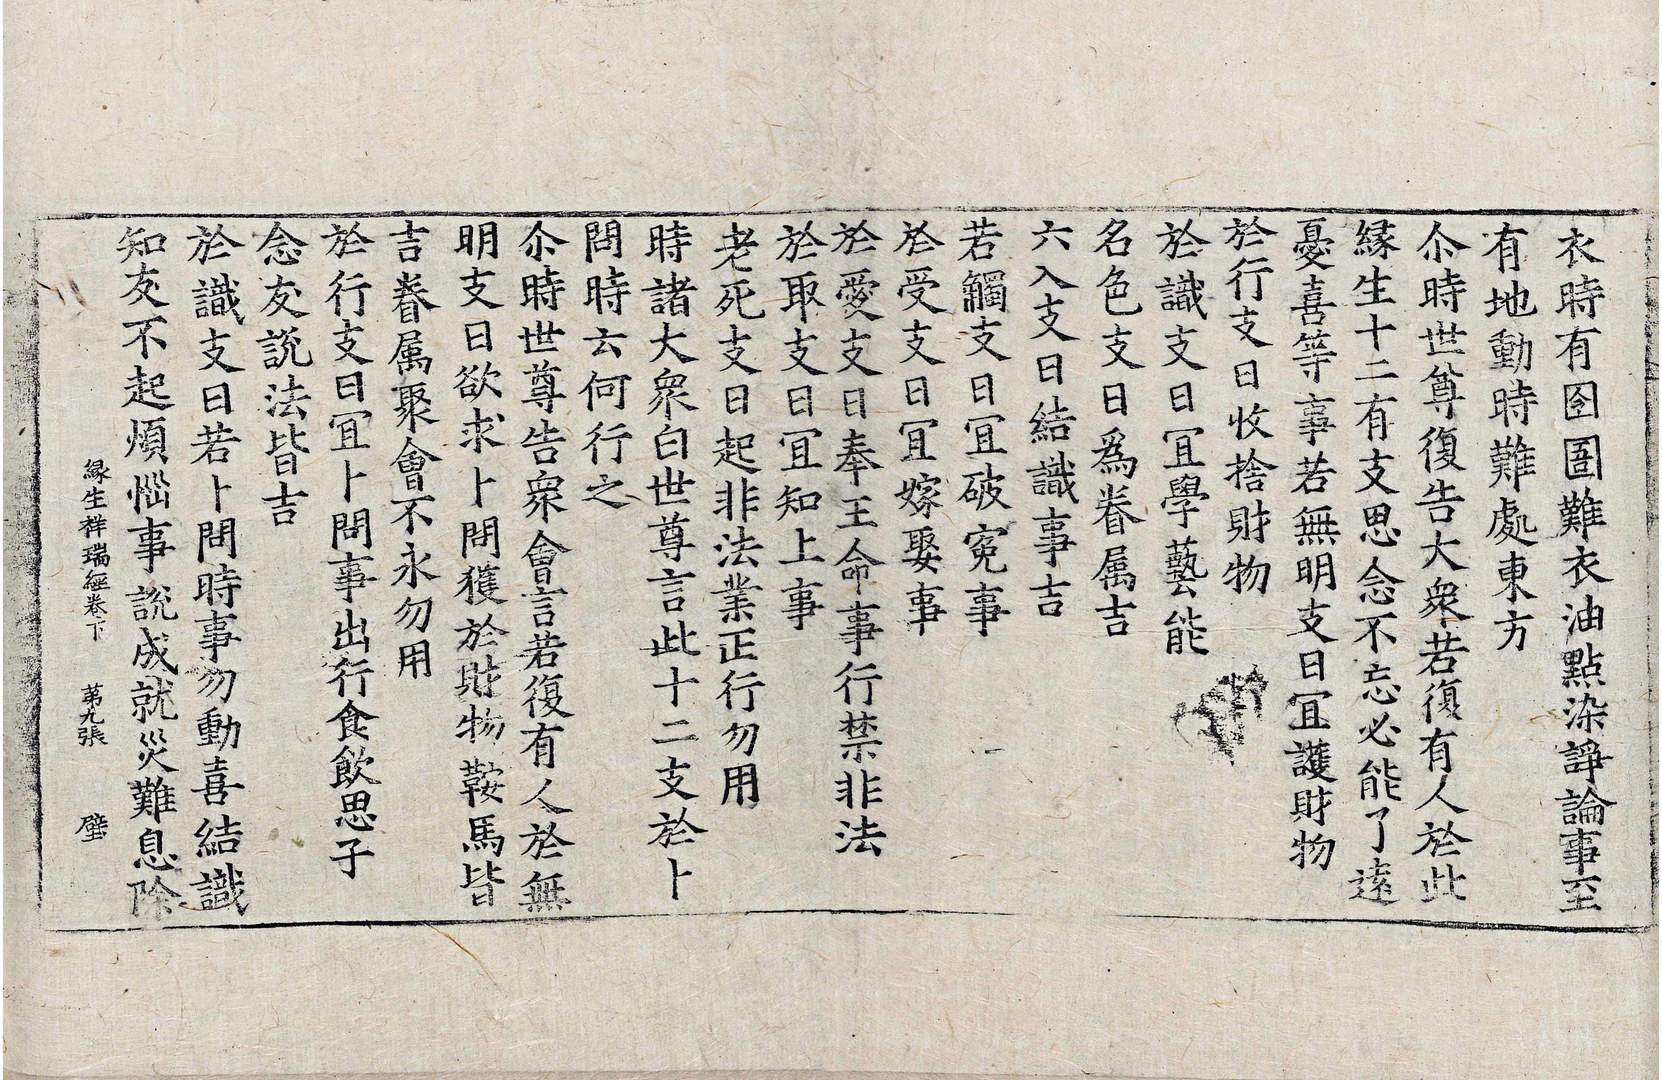 衣時有囹圄難衣油點染諍論事至
有地動時難處東方
尒時世尊復告大衆若復有人於此
縁生十二有支思念不忘必能了逺
憂喜等事若無明支日冝護財物
於行支日收捨財物
於識支日冝學藝能
名色支日爲眷属吉
六入支日結識事吉
若觸支日冝破寃事
於受支日冝嫁娶事
於愛支日奉王命事行禁非法
於取支日冝知上事
老死支日起非法業正行勿用
時諸大衆白世尊言此十二支於卜
問時云何行之
尒時世尊告衆會言若復有人於無
明支日欲求卜問獲於財物鞍馬皆
吉眷属聚會不永勿用
於行支日冝卜問事出行食飲思子
念友說法皆吉
於識支日若卜問時事勿動喜結識
知友不起煩惱事說成就災難息除
縁生祥瑞經卷下 苐九張 壁